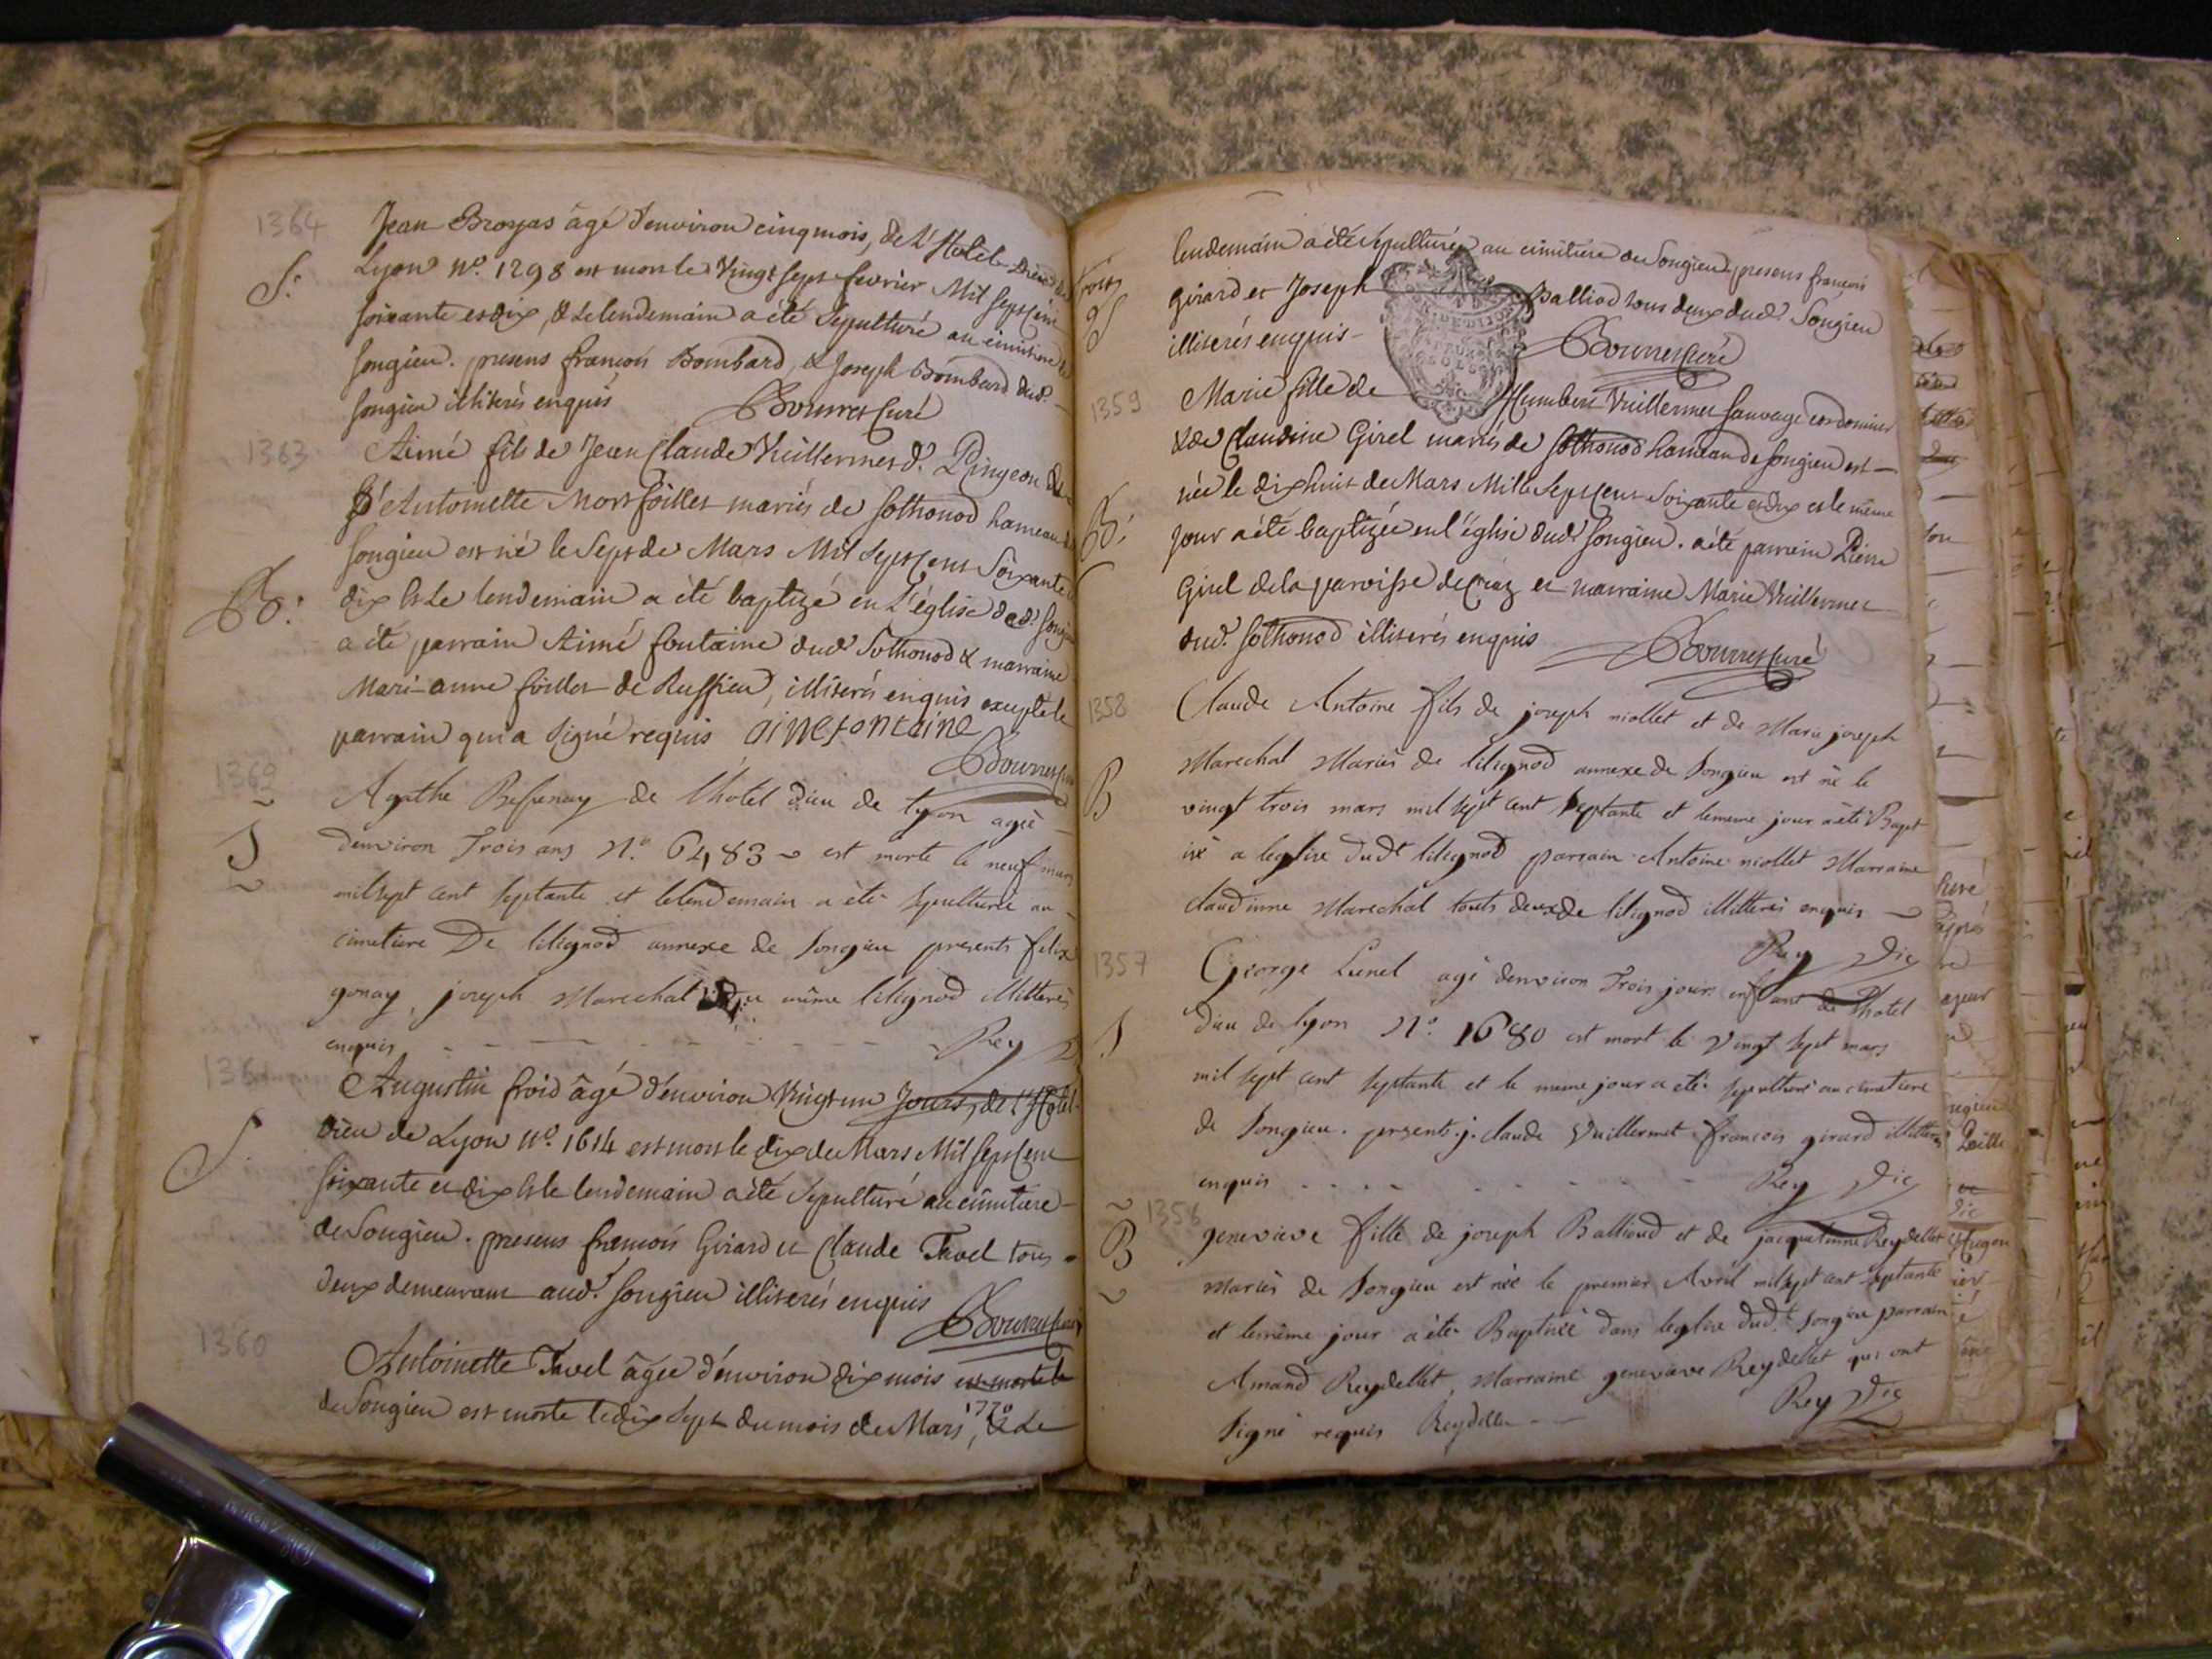 1364
Jean Brojas âgé d'environ cinq mois, de L'Hotel-Dieu de
S.
Lyon N.º 1298 est mort le Vingt Sept fevrier Mil Sept Cent
soixante et dix, & Le lendemain a été Sepulturé au cimitiere de
Songieu. presens françois Bombard, & Joseph Bombard dud.
Songieu illiterés enquis Bourret Curé
1363
Aimé fils de Jean Claude Vuillermet d. Pingeon &
d'Antoinette Mort foillet mariés de Sothonod hameau de
Songieu est né le Sept de Mars Mil Sept Cent Soixante
B:
dix & Le lendemain a été baptizé en L'église dud. Songieu
a été parrain Aimé fontaine dud. Sothonod & marraine
Mari-anne foillet de Ruffieu, illiterés enquis excepté le
parrain qui a Signé requis aime fontaine
Bourret Curé
1362
Agathe de l'hotel dieu de Lyon agée
S
denviron Trois ans N.º 6483 est morte le neuf mars
mil sept cent septante et le lendemain a été sepulturée au
cimetiere De lilignod annexe de Songieu presents felix
gonay, joseph Marechal du même lilignod illitteres
enquis Rey
1361
Augustin froid âgé d'environ Vingt un Jours, de L'Hotel-
S.
Dieu de Lyon N.º 1614 est mort le dix de Mars Mil Sept Cent
soixante et dix & le lendemain a été Sepulturé au cimitiere
de Songieu. presens françois Girard et Claude Tavel tous
deux demeurant aud. Songieu illiterés enquis
Bourret Curé
1360
Antoinette Tavel âgée d'environ dix mois est morte le
de Songieu est morte le dix Sept du mois de Mars 1770, & Le
lendemain a été Sepulturée au cimitiere de Songieu presens françois
S
girard et Joseph Balliod tous deux dud. Songieu
illiterés enquis-
Bourret Curé
1359
Marie fille de Humbert Vuillermet Sauvage cordonnier
& de Claudine Girel mariés de Sothonod hameau de Songieu est
née le dix huit de Mars Mille Sept Cent Soixante et dix et le même
B:
jour a été baptizée en l'église dud. Songieu. a été parrain Pierre
Girel de la paroisse de et marraine Marie Vuillermet
dud. Sothonod illiterés enquis
Bourret Curé
1358
Claude Antoine fils de joseph niollet et de Marie joseph
Marechal Mariés de lilignod annexe de Songieu est né le
B
vingt trois mars mil sept cent septante et le meme jour a été Bapt
isé a leglise dudt lilignod parrain Antoine niollet Marraine
claudinne Marechal touts deux de lilignod illitterés enquis
Rey Vic
1357
George Lunel agé denviron Trois jours enfant de l'hotel
S
dieu de lyon N.º 1680 est mort le Vingt sept mars
mil sept cent septante et le meme jour a été sepulturé au cimetiere
de Songieu. presents j. claude Vuillermet françois girard illitteres
enquis
Rey Vic
1356
genevieve fille de joseph Balliod et de jacquetinne Reydellet
B
Mariés de Songieu est née le premier Avril mil sept cent septante
et le même jour a été Baptisée dans leglise dudt. Songieu parrain
Amand Reydellet, Marraine genevieve Reydellet qui ont
Signé requis Reydellet
Rey Vic